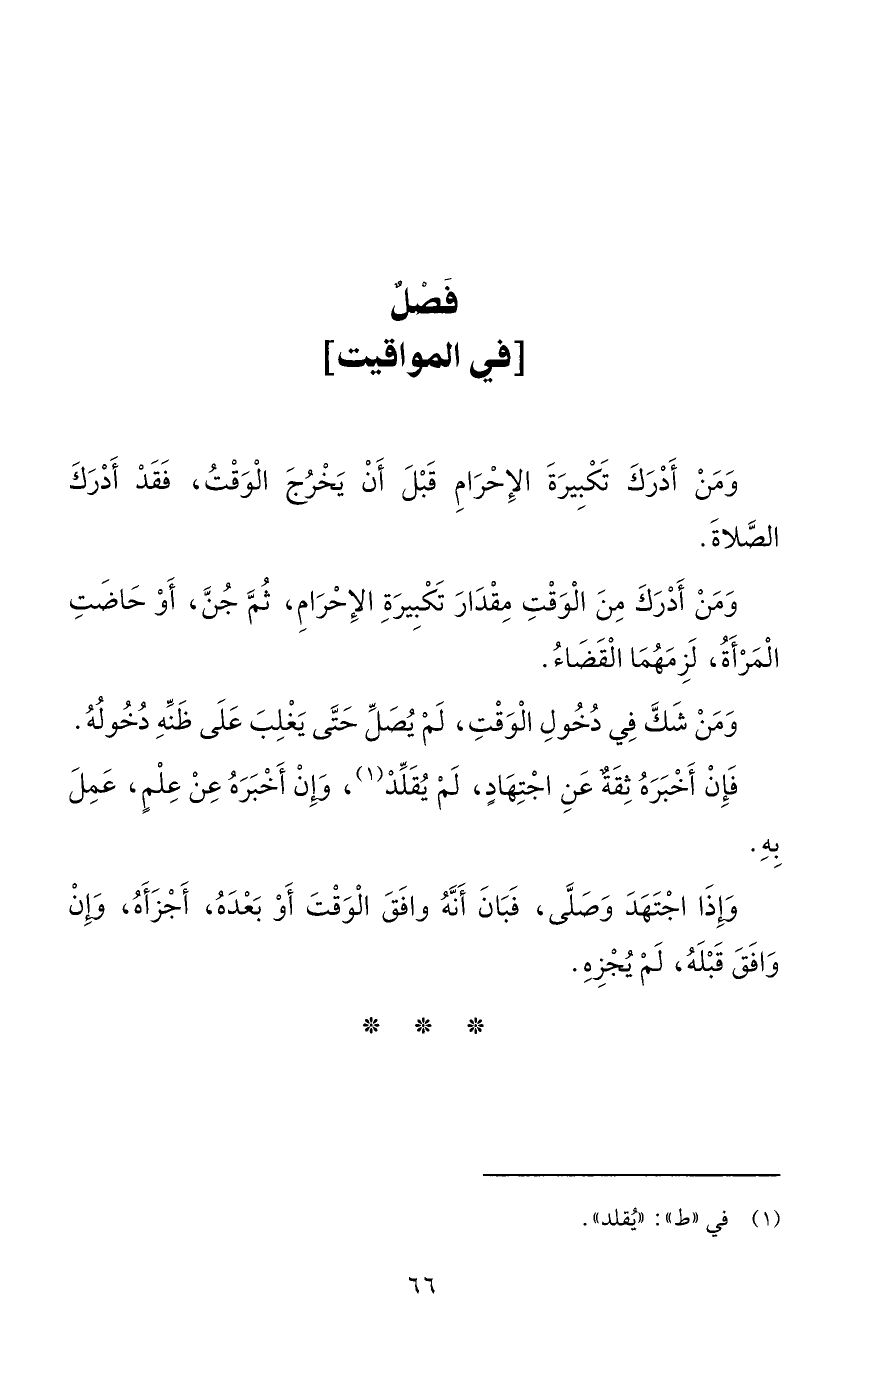 فَصْلٌ
[في المواقيت]
وَمَنْ أَدْرَكَ تَكْبِيرَةَ الإِحْرَامِ قَبْلَ أَنْ يَخْرُجَ الْوَقْتُ، فَقَدْ أَدْرَكَ
الصَّلاةَ.
وَمَنْ أَدْرَكَ مِنَ الْوَقْتِ مِقْدَارَ تَكْبِيرَةِ الإِحْرَامِ، ثُمَّ جُنَّ، أَوْ حَاضَتِ
الْمَرْأَةُ، لَزِمَهُمَا الْقَضَاءُ.
وَمَنْ شَكَّ فِي دُخُولِ الْوَقْتِ، لَمْ يُصَلِّ حَتَّى يَغْلِبَ عَلَى ظَنِّهِ دُخُولُهُ.
فَإِنْ أَخْبَرَهُ ثِقَةٌ عَنِ اجْتِهَادٍ، لَمْ يُقَلِّدْ(١)، وَإِنْ أَخْبَرَهُ عِنْ عِلْمٍ، عَمِلَ
بِهِ.
وَإِذَا اجْتَهَدَ وَصَلَّى، فَبَانَ أَنَّهُ وافَقَ الْوَقْتَ أَوْ بَعْدَهُ، أَجْزَأَهُ، وَإِنْ
وَافَقَ قَبْلَهُ، لَمْ يُجْزِهِ.
* * *
(١) في «ط»: «يُقلد».
٦٦